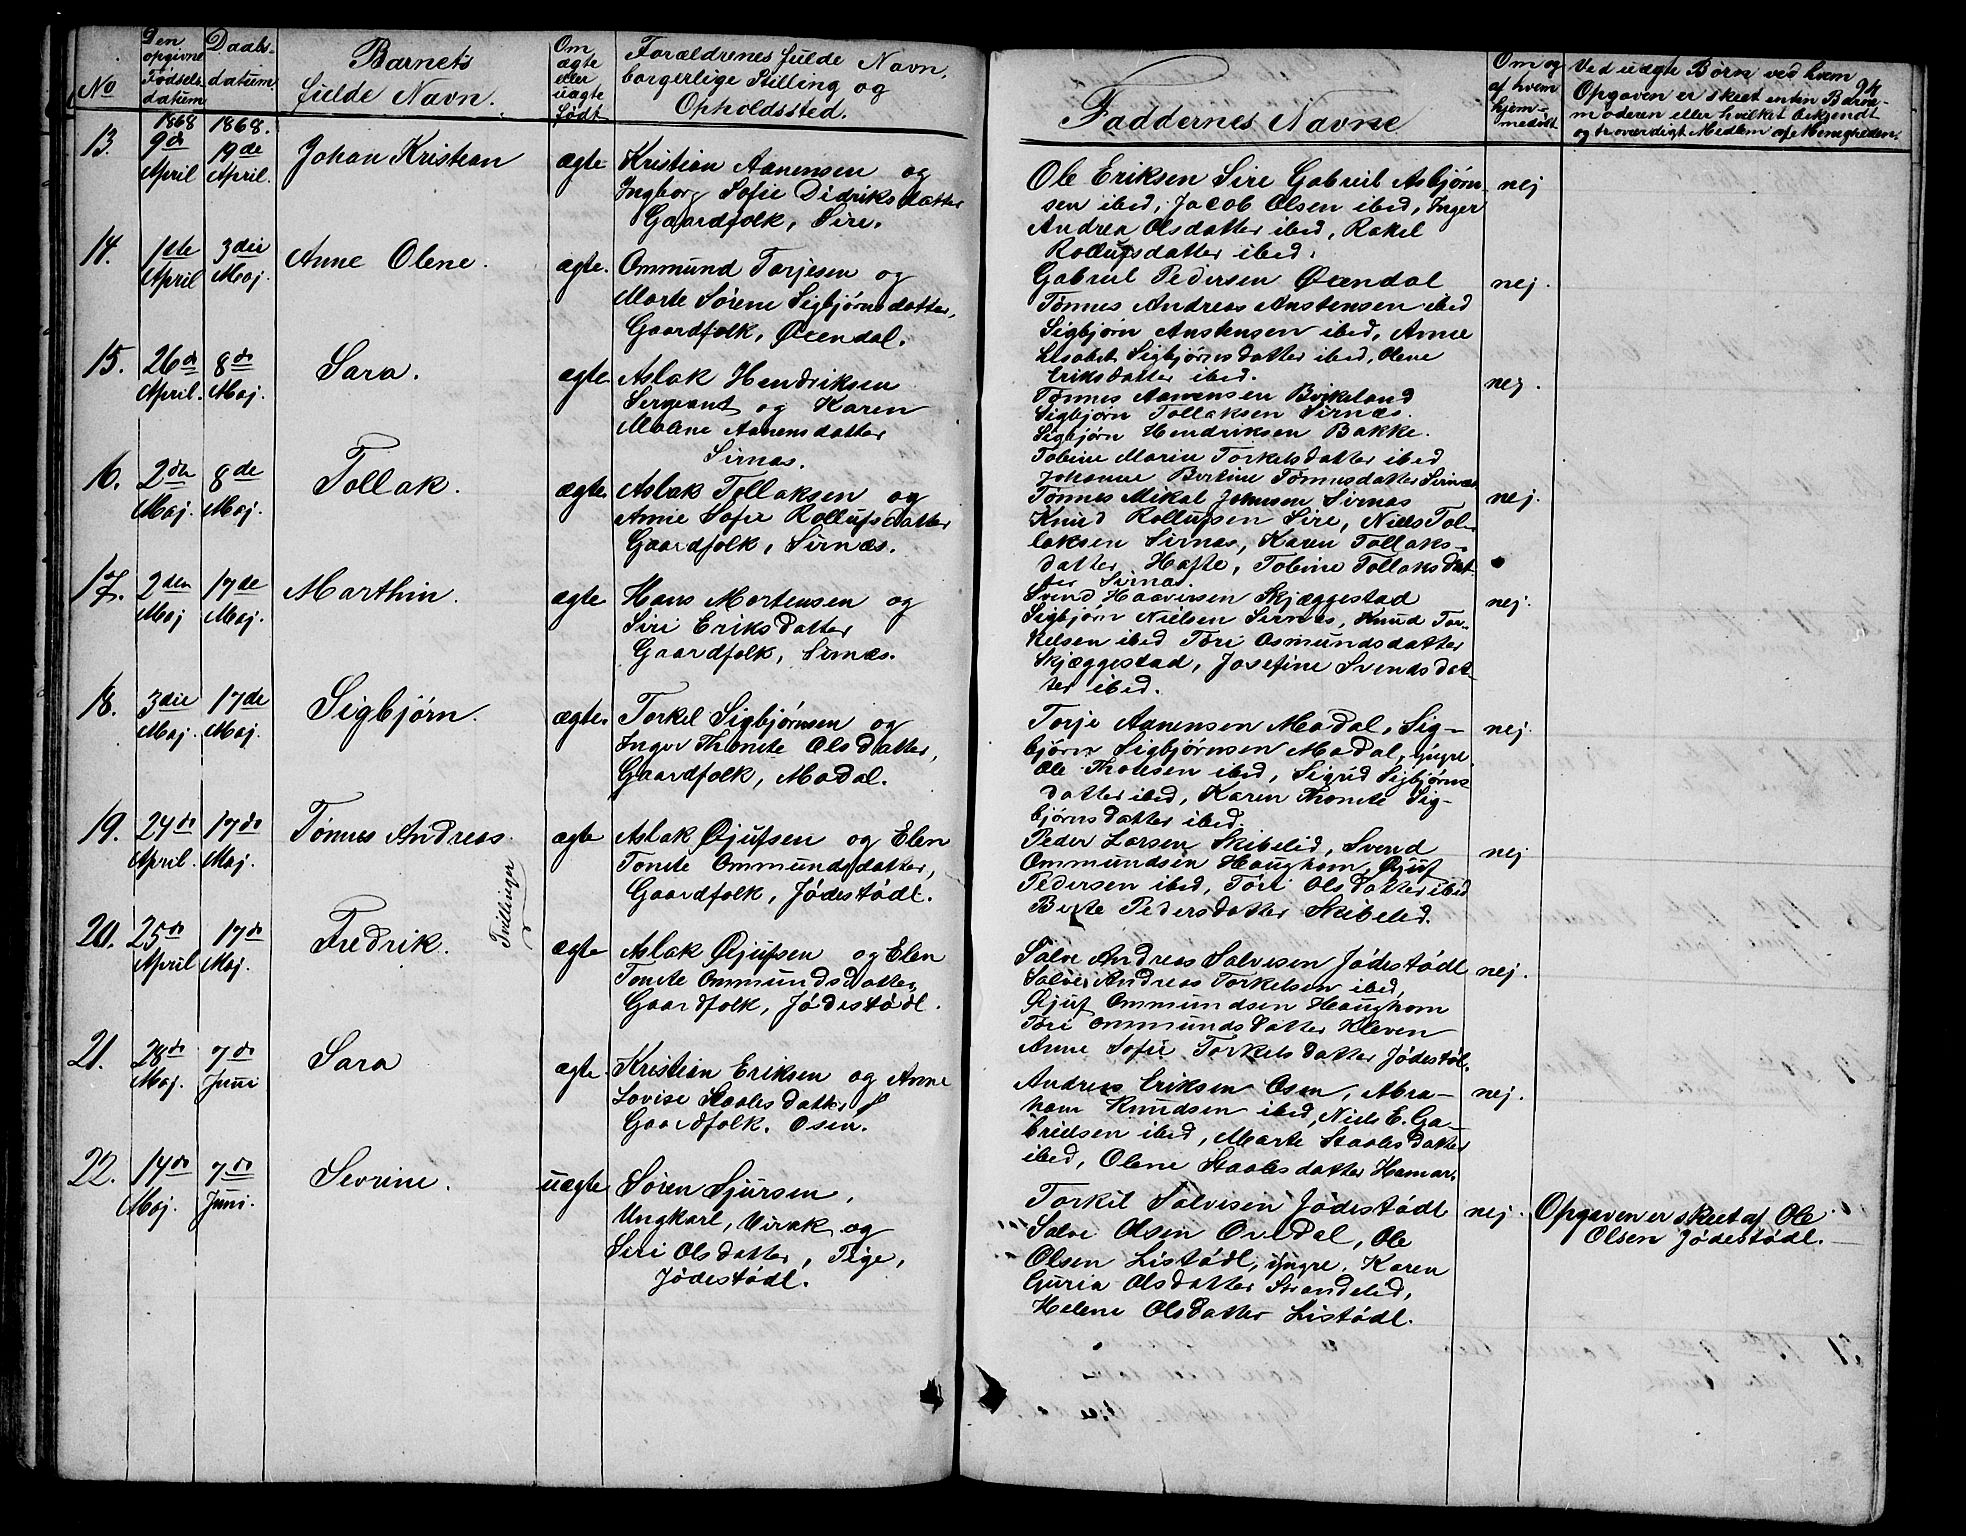 No
Den opgivne Fødselsdatum
Daabsdatum
Barnets fulde Navn.
Om ægte eller uægte Født
Forældrenes fulde Navn, borgerlige Stilling og Opholdssted.
Faddernes Navne
Om og af hvem hjemmedøbt
Ved uægte Børn ved hvem Opgaven er skeet enten Barnemoderen eller hvilket bekjendt og troværdigt Medlem af Menigheden.
94
1868 1868.
13. 9de April 19de April. Johan Kristian ægte
Kristian Aanensen og
Ingborg Sofie Didriksdatter
Gaardfolk, Sire.
Ole Eriksen Sire Gabriel Asbjørn-
sen ibid, Jacob Olsen ibid, Inger
Andrea Olsdatter ibid, Rakel
Rollufsdatter ibid.
nej
14. 1ste April 3die Maj. Anne Olene. ægte.
Ommund Torjesen og
Marte Sørene Sigbjørnsdatter,
Gaardfolk, Øxendal.
Gabriel Pedersen Øxendal
Tønnes Andreas Anstensen ibid
Sigbjørn Anstensen ibid, Anne
Lisabet Sigbjørnsdatter ibid, Olene
Eriksdatter ibid.
nej.
15. 26de April. 8de Maj. Sara. ægte
Aslak Hendriksen
Sergeant og Karen
Malene Aanensdatter
Sirnæs.
Tønnes Aanensen Birkeland
Sigbjørn Tollaksen Sirnæs.
Sigbjørn Hendriksen Bakke.
Tobine Marie Torkelsdatter ibid
Johanne Bertine Tønnesdatter Sirnæs
nej.
16. 2den Maj. 8de Maj. Tollak. ægte
Aslak Tollaksen og
Anne Sofie Rollufsdatter
Gaardfolk, Sirnæs.
Tønnes Mikal Johnsen Sirnæs
Knud Rollufsen Sire, Niels Tol-
laksen Sirnæs, Karen Tollaks-
datter Hafte, Tobine Tollaksdat-
ter Sirnæs.
nej.
17. 2den Maj 17de Maj. Marthin. ægte
Hans Mortensen og
Siri Eriksdatter
Gaardfolk, Sirnæs.
Svend Haaversen Skjæggestad
Sigbjørn Nielsen Sirnæs, Knud Tor-
kelsen ibid Tori Osmundsdatter
Skjæggestad, Josefine Svendsdat-
ter ibid.
nej.
18. 3die Maj. 17de Maj. Sigbjørn. ægte.
Torkel Sigbjørnsen og
Inger Thonete Olsdatter,
Gaardfolk, Modal.
Torje Aanensen Modal, Sig-
bjørn Sigbjørnsen Modal, yngre.
Ole Tholesen ibid, Sigrid Sigbjørns
datter ibid, Karen Thonete Sig-
bjørnsdatter ibid.
nej.
19. 24de April. 17de Maj. Tønnes Andreas. ægte
Aslak Øjufsen og Elen
Tonete Ommundsdatter,
Gaardfolk, Jødestødl.
Peder Larsen Skibelid, Svend
Ommundsen Haughom, Øjuf
Pedersen ibid, Tori Olsdatter ibid
Berte Pedersdatter Skibelid.
nej
Tvillinger
20. 25de April 17de Maj. Fredrik. ægte
Aslak Øjufsen og Elen
Tonete Ommundsdatter
Gaardfolk, Jødestødl.
Salve Andreas Salvesen Jødestødl
Salve Andreas Torkelsen ibid,
Øjuf Ommundsen Haughom
Tori Ommundsdatter Kleven
Anne Sofie Torkelsdatter Jødestøl.
nej.
21. 28de Maj. 7de Juni Sara ægte.
Kristian Eriksen og Anne
Lovise Staalesdatter
Gaardfolk. Osen.
Andreas Eriksen Osen, Abra-
ham Knudsen ibid, Niels E. Ga-
brielsen ibid, Marte Staalesdatter
ibid, Olene Staalesdatter Hamar.
nej.
22. 14de Maj. 7de Juni. Sevrine. uægte
Søren Sjursen,
Ungkarl, Virak og
Siri Olsdatter, Pige,
Jødestødl.
Torkel Salvesen Jødestødl
Salve Olsen Ovedal, Ole
Olsen Listødl, yngre, Karen
Guria Olsdatter Strandelid,
Helene Olsdatter Listødl.
nej.
Opgaven er skeet af Ole
Olsen Jødestødl.